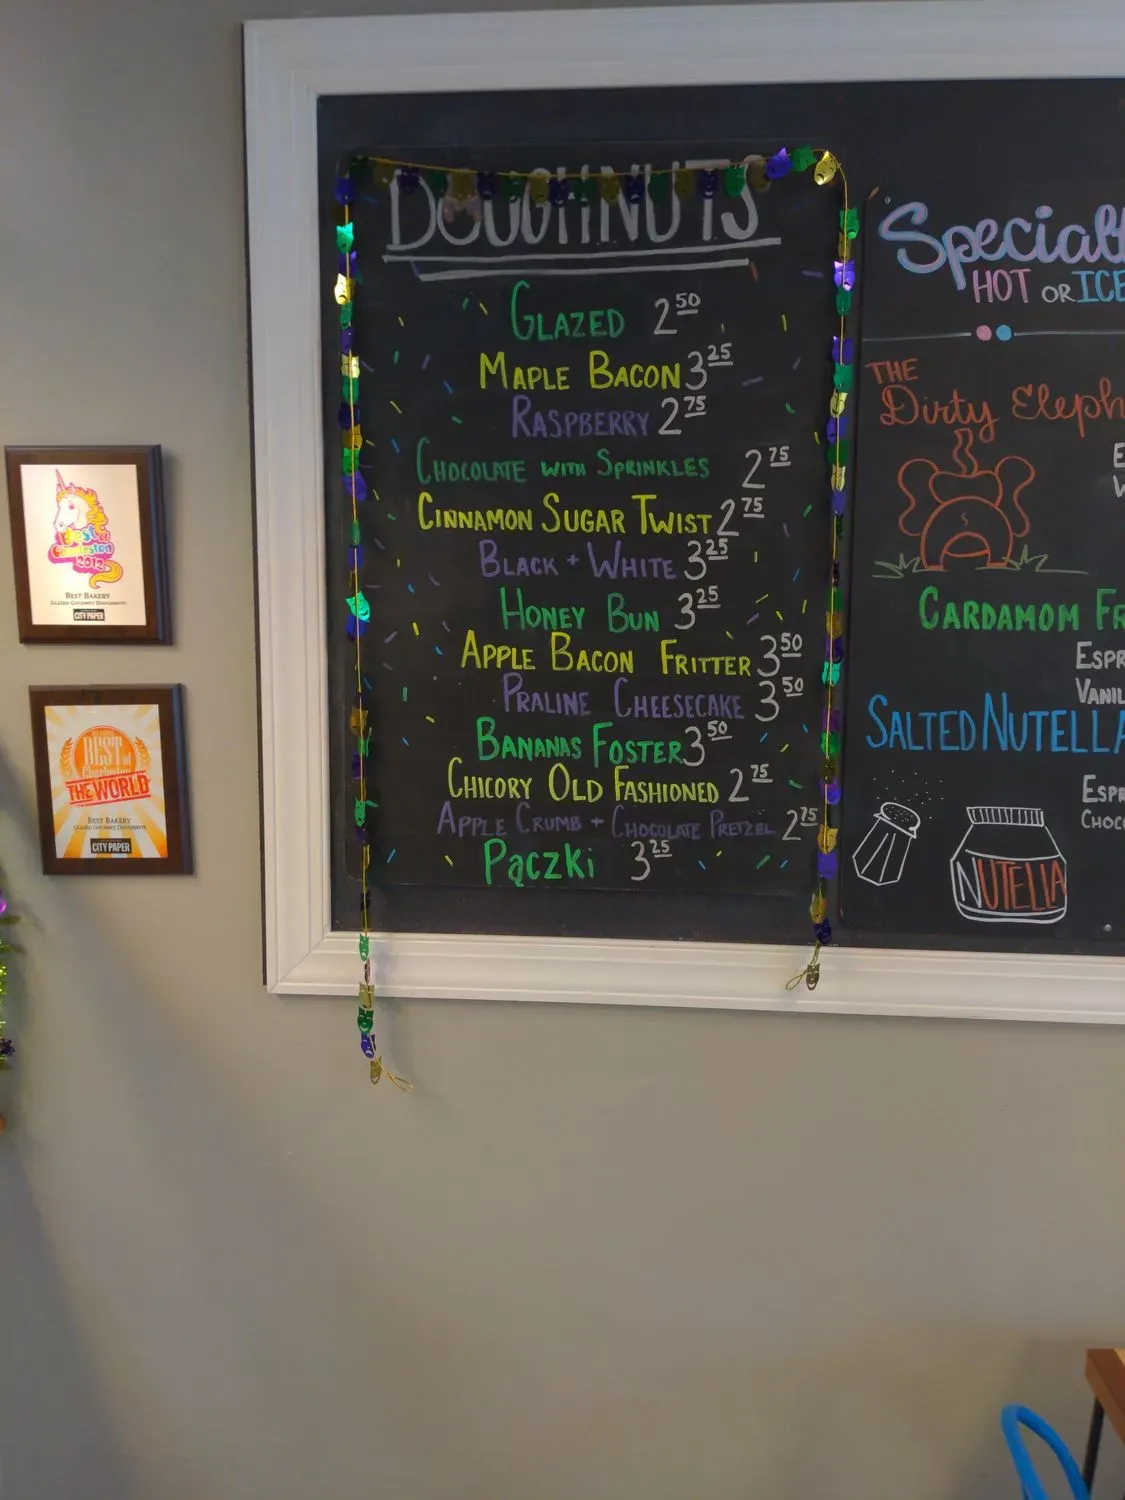 DOUGHNUTS
GLAZED 2.50
MAPLE BACON 3.25
RASPBERRY 2.75
CHOCOLATE WITH SPRINKLES 2.75
CINNAMON SUGAR TWIST 2.75
BLACK + WHITE 3.25
HONEY BUN 3.25
APPLE BACON FRITTER 3.50
PRALINE CHEESECAKE 3.50
BANANAS FOSTER 3.50
CHICORY OLD FASHIONED 2.75
APPLE CRUMB + CHOCOLATE PRETZEL 2.75
Pączki 3.25
Specialt
HOT OR ICE
THE
Dirty Eleph
E
CARDAMOM FR
ESPR
VANIL
SALTED NUTELLA
ESPR
CHOC
NUTELLA
Best of
Charleston
2012
BEST BAKERY
GLAZED GOURMET DOUGHNUTS
CITY PAPER
BEST of
Charleston
THE WORLD
BEST BAKERY
GLAZED GOURMET DOUGHNUTS
CITY PAPER